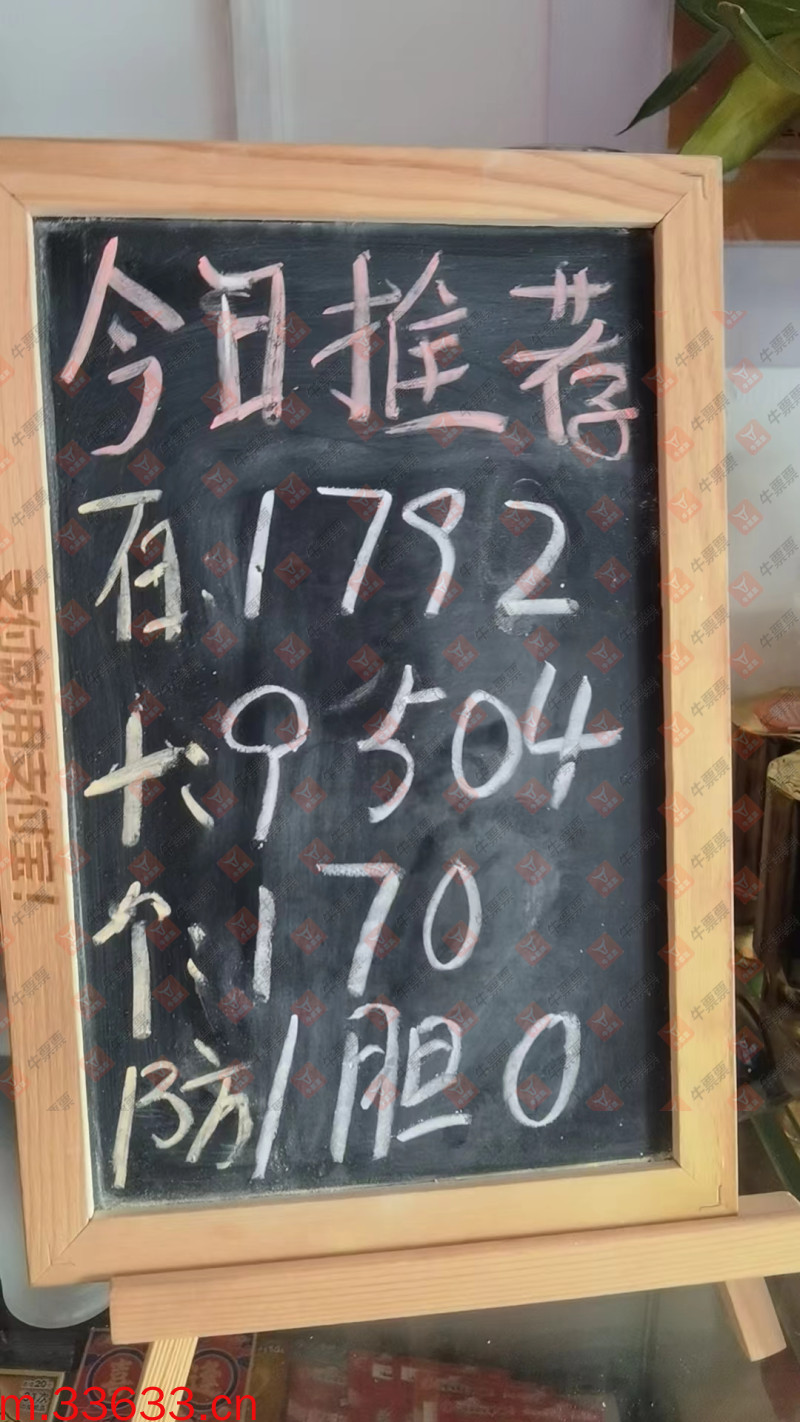 今日推荐
百、1792
十、9504
个、170
防1胆0
支付就用支付宝!
牛票票
m.33633.cn